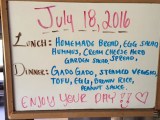 July 18, 2016
Lunch: Homemade Bread, Egg Salad
Hummus, Cream Cheese Herb
Garden Salad, Spread,
Dinner: Gado Gado, Steamed Veggies
Tofu, Egg, Brown Rice,
Peanut Sauce.
Enjoy your day!!